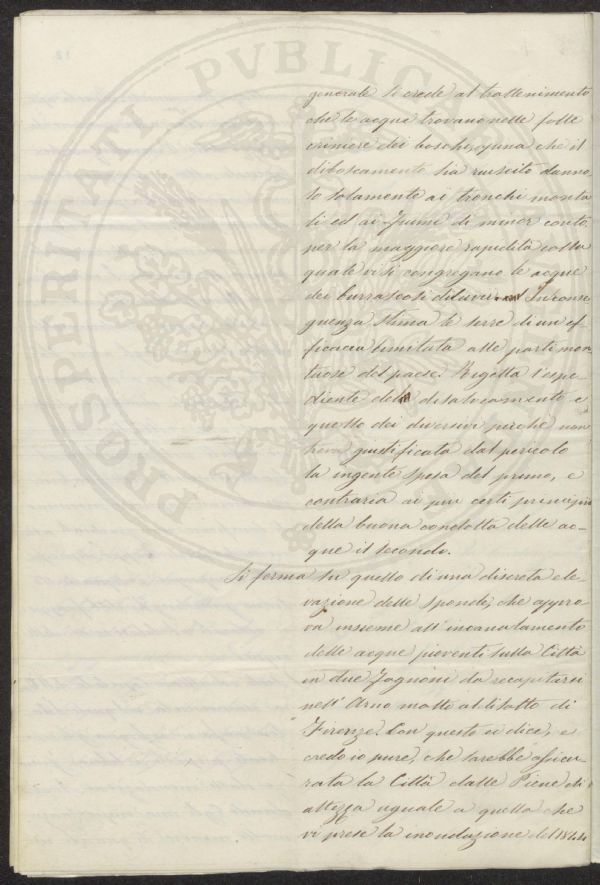 PROSPERITATI PVBLICAE
generale si crede al trattenimento
che le acque trovano nelle folte
criniere dei boschi, opina che il
diboscamento sia riuscito danno
so solamente ai tronchi monta
li ed ai fiumi di minor conto
per la maggiore rapidità colla
quale vi si congregano le acque
dei burrascosi diluvi. In conse
guenza stima le serre di un ef
ficacia limitata alle parti mon
tuose del paese. Rigetta l'espe
diente del disalveamento e
quello dei diversivi perchè non
trova giustificata dal pericolo
la ingente spesa del primo, e
contraria ai piu certi principii
della buona condotta delle ac-
que il secondo.
Si ferma su quello di una discreta ele
vazione delle sponde, che appro
va insieme all'incanalamento
delle acque pioventi sulla Città
in due fognoni da recapitarsi
nell'Arno molto al disotto di
Firenze. Con questo ei dice, e
credo io pure, che sarebbe assicu
rata la Città dalle Piene di
altezza uguale a quella che
vi prese la inondazione del 1844